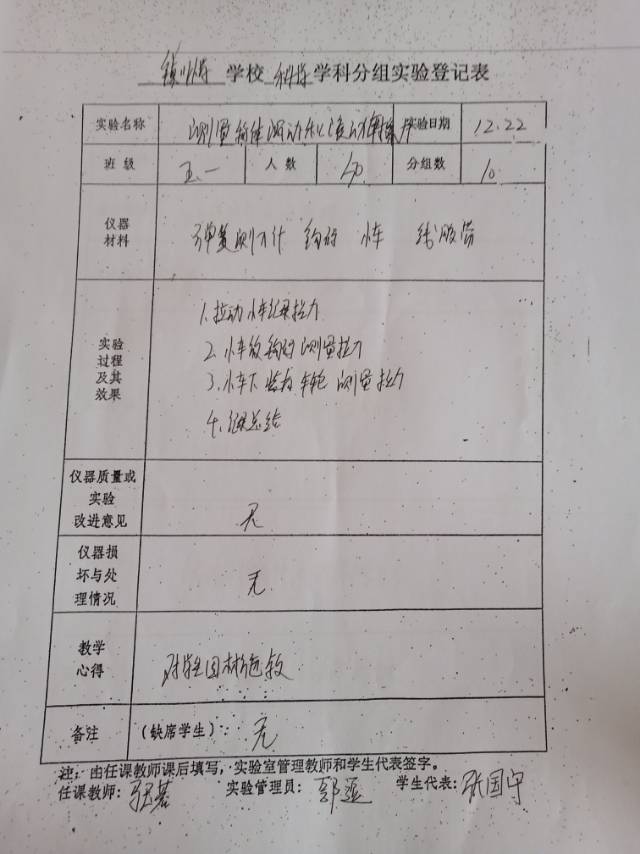 学校 科技 学科分组实验登记表
实验名称 测量物体滑动 实验日期 12.22
班级 五一 人数 分组数 10
仪器材料 弹簧测力计 钩码 小车 线 胶带
实验过程及其效果
1.拉动小车记录拉力
2.小车放钩码 测量拉力
3.小车下 车轮 测量拉力
4. 总结
仪器质量或实验改进意见 无
仪器损坏与处理情况 无
教学心得 因材施教
备注 (缺席学生): 无
注:由任课教师课后填写,实验室管理教师和学生代表签字。
任课教师: 实验管理员: 学生代表: 张国宁